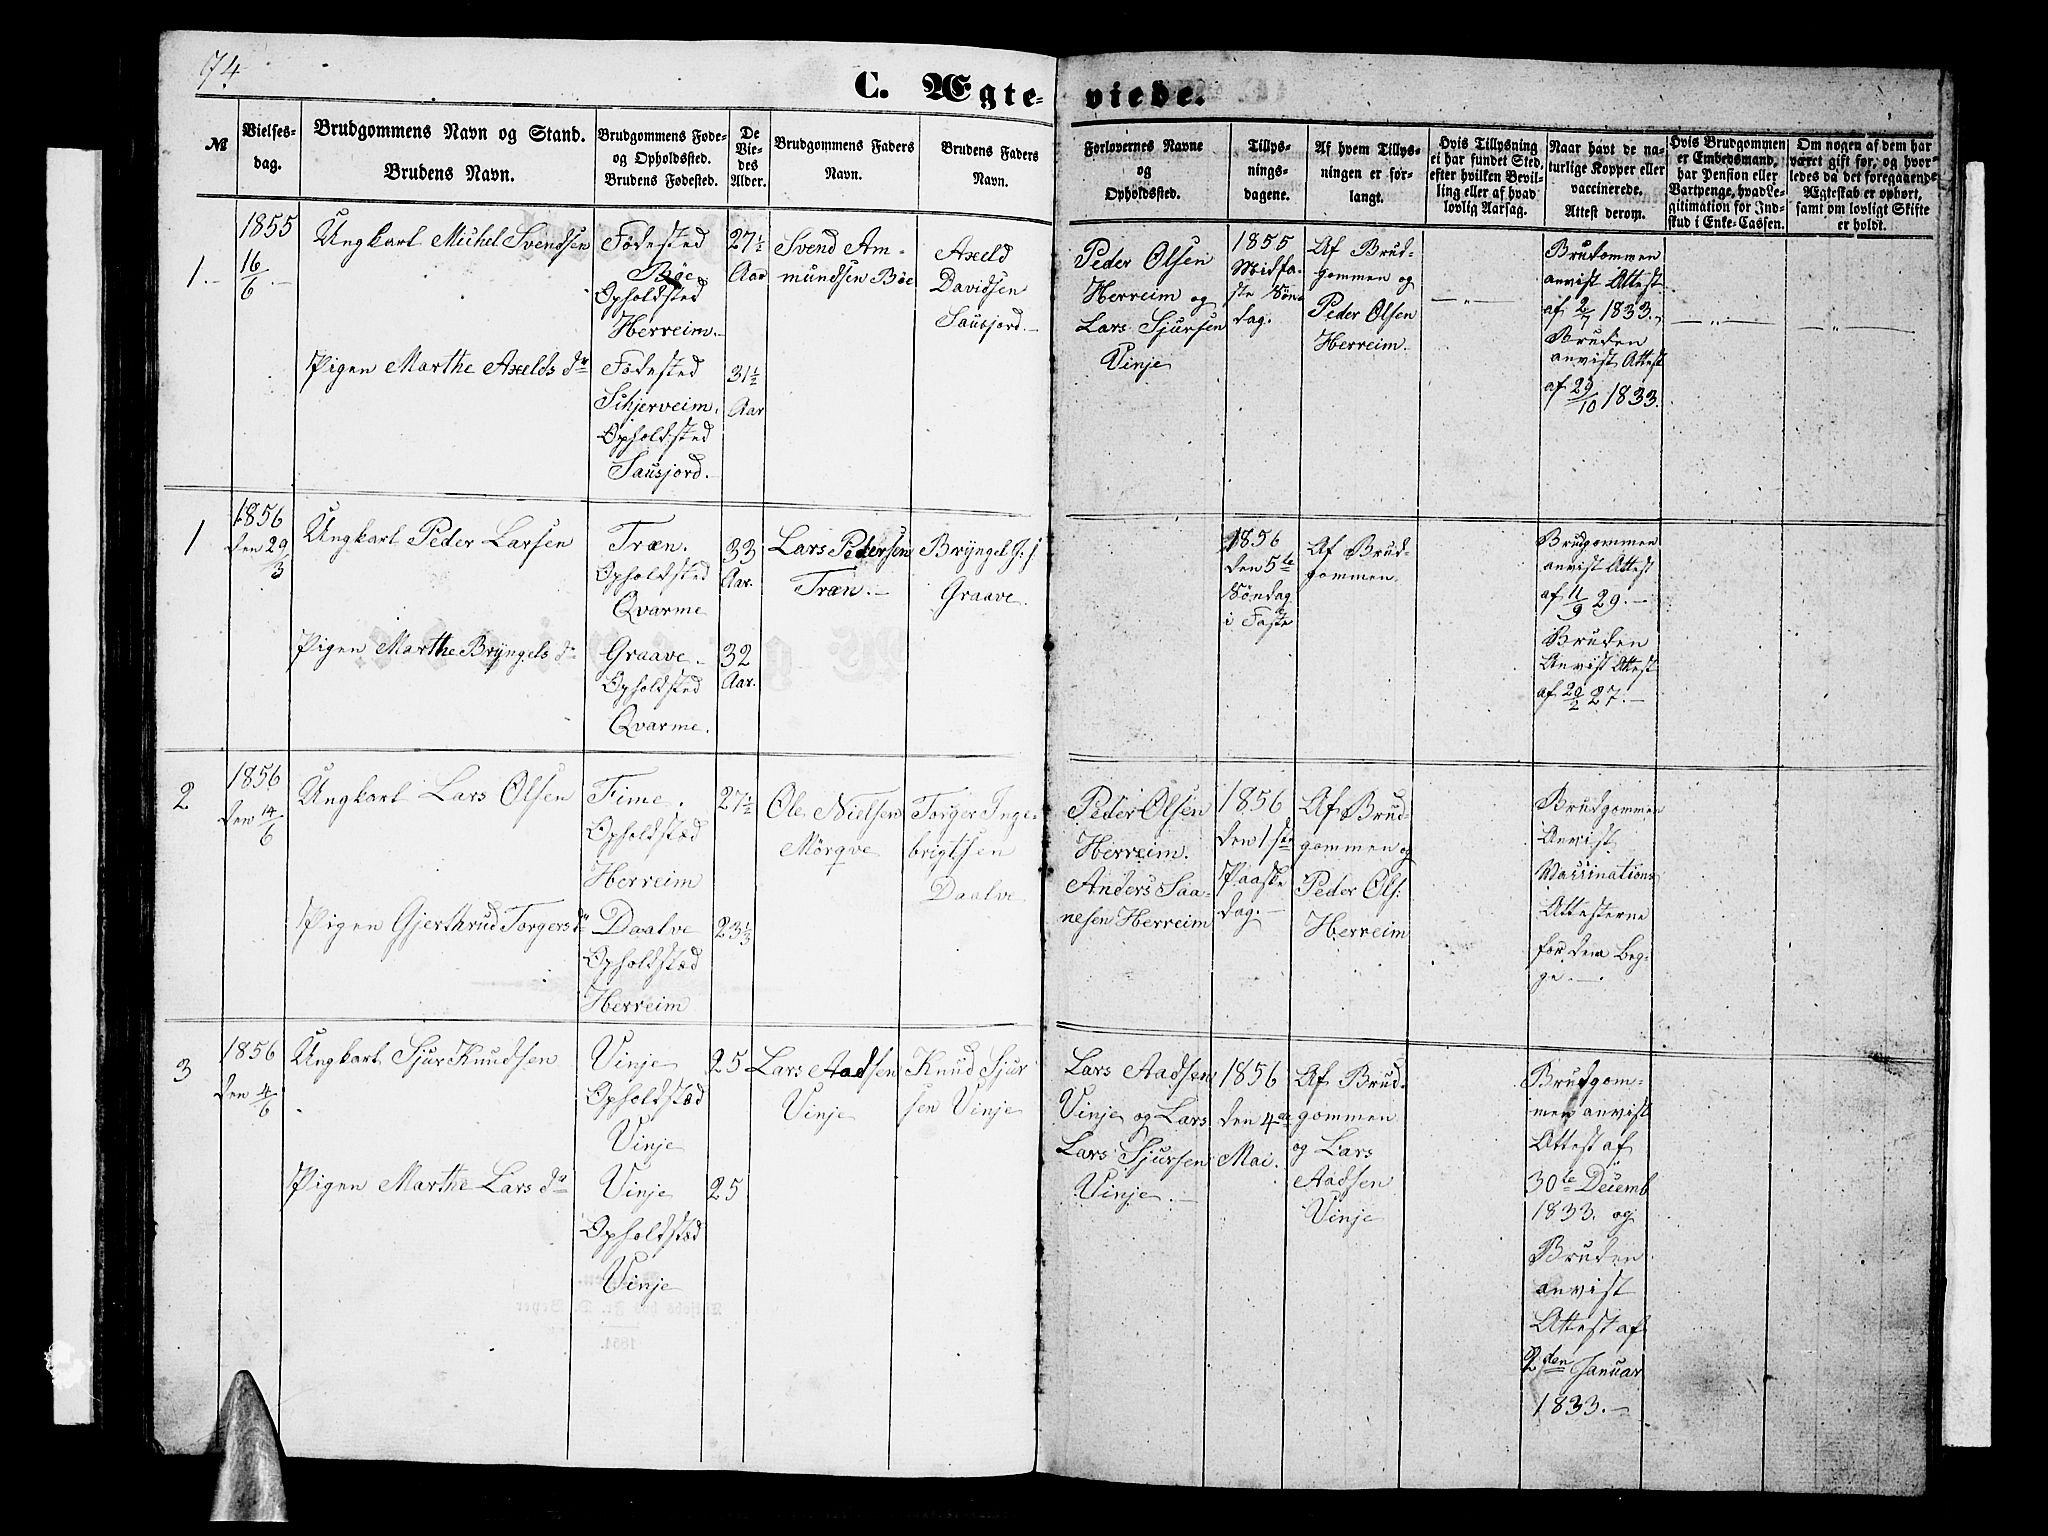 74.
C. Ægte-
viede.
№
Vielses-
dag.
Brudgommens Navn og Stand.
Brudens Navn.
Brudgommens Føde-
og Opholdssted.
Brudens Fødested.
De
Vie-
des
Alder.
Brudgommens Faders
Navn.
Brudens Faders
Navn.
Forlovernes Navne
og
Opholdssted.
Tillys-
nings-
dagene.
Af hvem Tillys-
ningen er for-
langt.
Hvis Tillysning
ei har fundet Sted,
efter hvilken Bevil-
ling eller af hvad
lovlig Aarsag.
Naar havt de na-
turlige Kopper eller
vaccinerede.
Attest derom.
Hvis Brudgommen
er Embedsmand,
har Pension eller
Vartpenge, hvad Le-
gitimation for Ind-
skud i Enke-Cassen.
Om nogen af dem har
været gift før, og hvor-
ledes da det foregaaende
Ægteskab er ophørt,
samt om lovligt Skifte
er holdt.
1.-
1855
16/6.-
Ungkarl Michel Svendsen
Pigen Marthe Axelds dr
Fødested
Bøe
Opholdsted
Herreim.-
Fødested
Schjerveim.
Opholdsted
Sausjord.-
27½
Aar
31½
Aar
Svend Am-
mundsen Bøe
Axeld
Davidsen
Sausjord.-
Peder Olsen
Herreim og
Lars Sjursen
Vinje
1855
Midfa-
ste Søn-
dag.
Af Brud-
gommen og
Peder Olsen
Herreim.
— „ —
Brudommen
anvist Attest
af 2/7 1833.,
Bruden
anvist Attest
af 29/10 1833.
— „ —
— „ —
1
1856
den 29/3
Ungkarl Peder Larsen
Pigen Marthe Bryngels dr
Træn.
Opholdsted
Qvarme
Graave.
Opholdsted
Qvarme.
33
Aar.
32
Aar.
Lars Pedersen
Træn.-
Bryngel J.s
Graave.
1856
den 5te
Søndag
i Faste
Af Brud-
gommen.
Brudgommen
anvist Attest
af 11/9 29.-
Bruden
Anvist Attest
af 20/2 27.-
2
1856
den 14/6
Ungkarl Lars Olsen
Pigen Gjerthrud Torgersdr
Fime.
Opholdsted
Herreim
Daalve
Opholdsted
Herreim
27½
23⅓
Ole Nielsen
Mörqve
Torger Inge-
brigtsen
Daalve
Peder Olsen
Herreim.
Anders Saa-
nesen Herreim
1856
den 1ste
Paaske
dag.-
Af Brud-
gommen og
Peder Ols:
Herreim
Brudgommen
Anvist
Vaccinations
Attesterne
for dem Beg-
ge.-
3
1856
den 4/6
Ungkarl Sjur Knudsen
Pigen Marthe Lars dr
Vinje
Opholdsted
Vinje
Vinje
Opholdsted
Vinje
25
25
Lars Aadsen
Vinje
Knud Sjur
sen Vinje
Lars Aadsen
Vinje og Lars
Lars Sjursen
Vinje.-
1856
den 4de
Mai.
Af Brud-
gommen
og Lars
Aadsen
Vinje
Brudgom-
men anvist
Attest af
30te Decemb
1833. og
Bruden
anvist
Attest af
2den Januar
1833.-